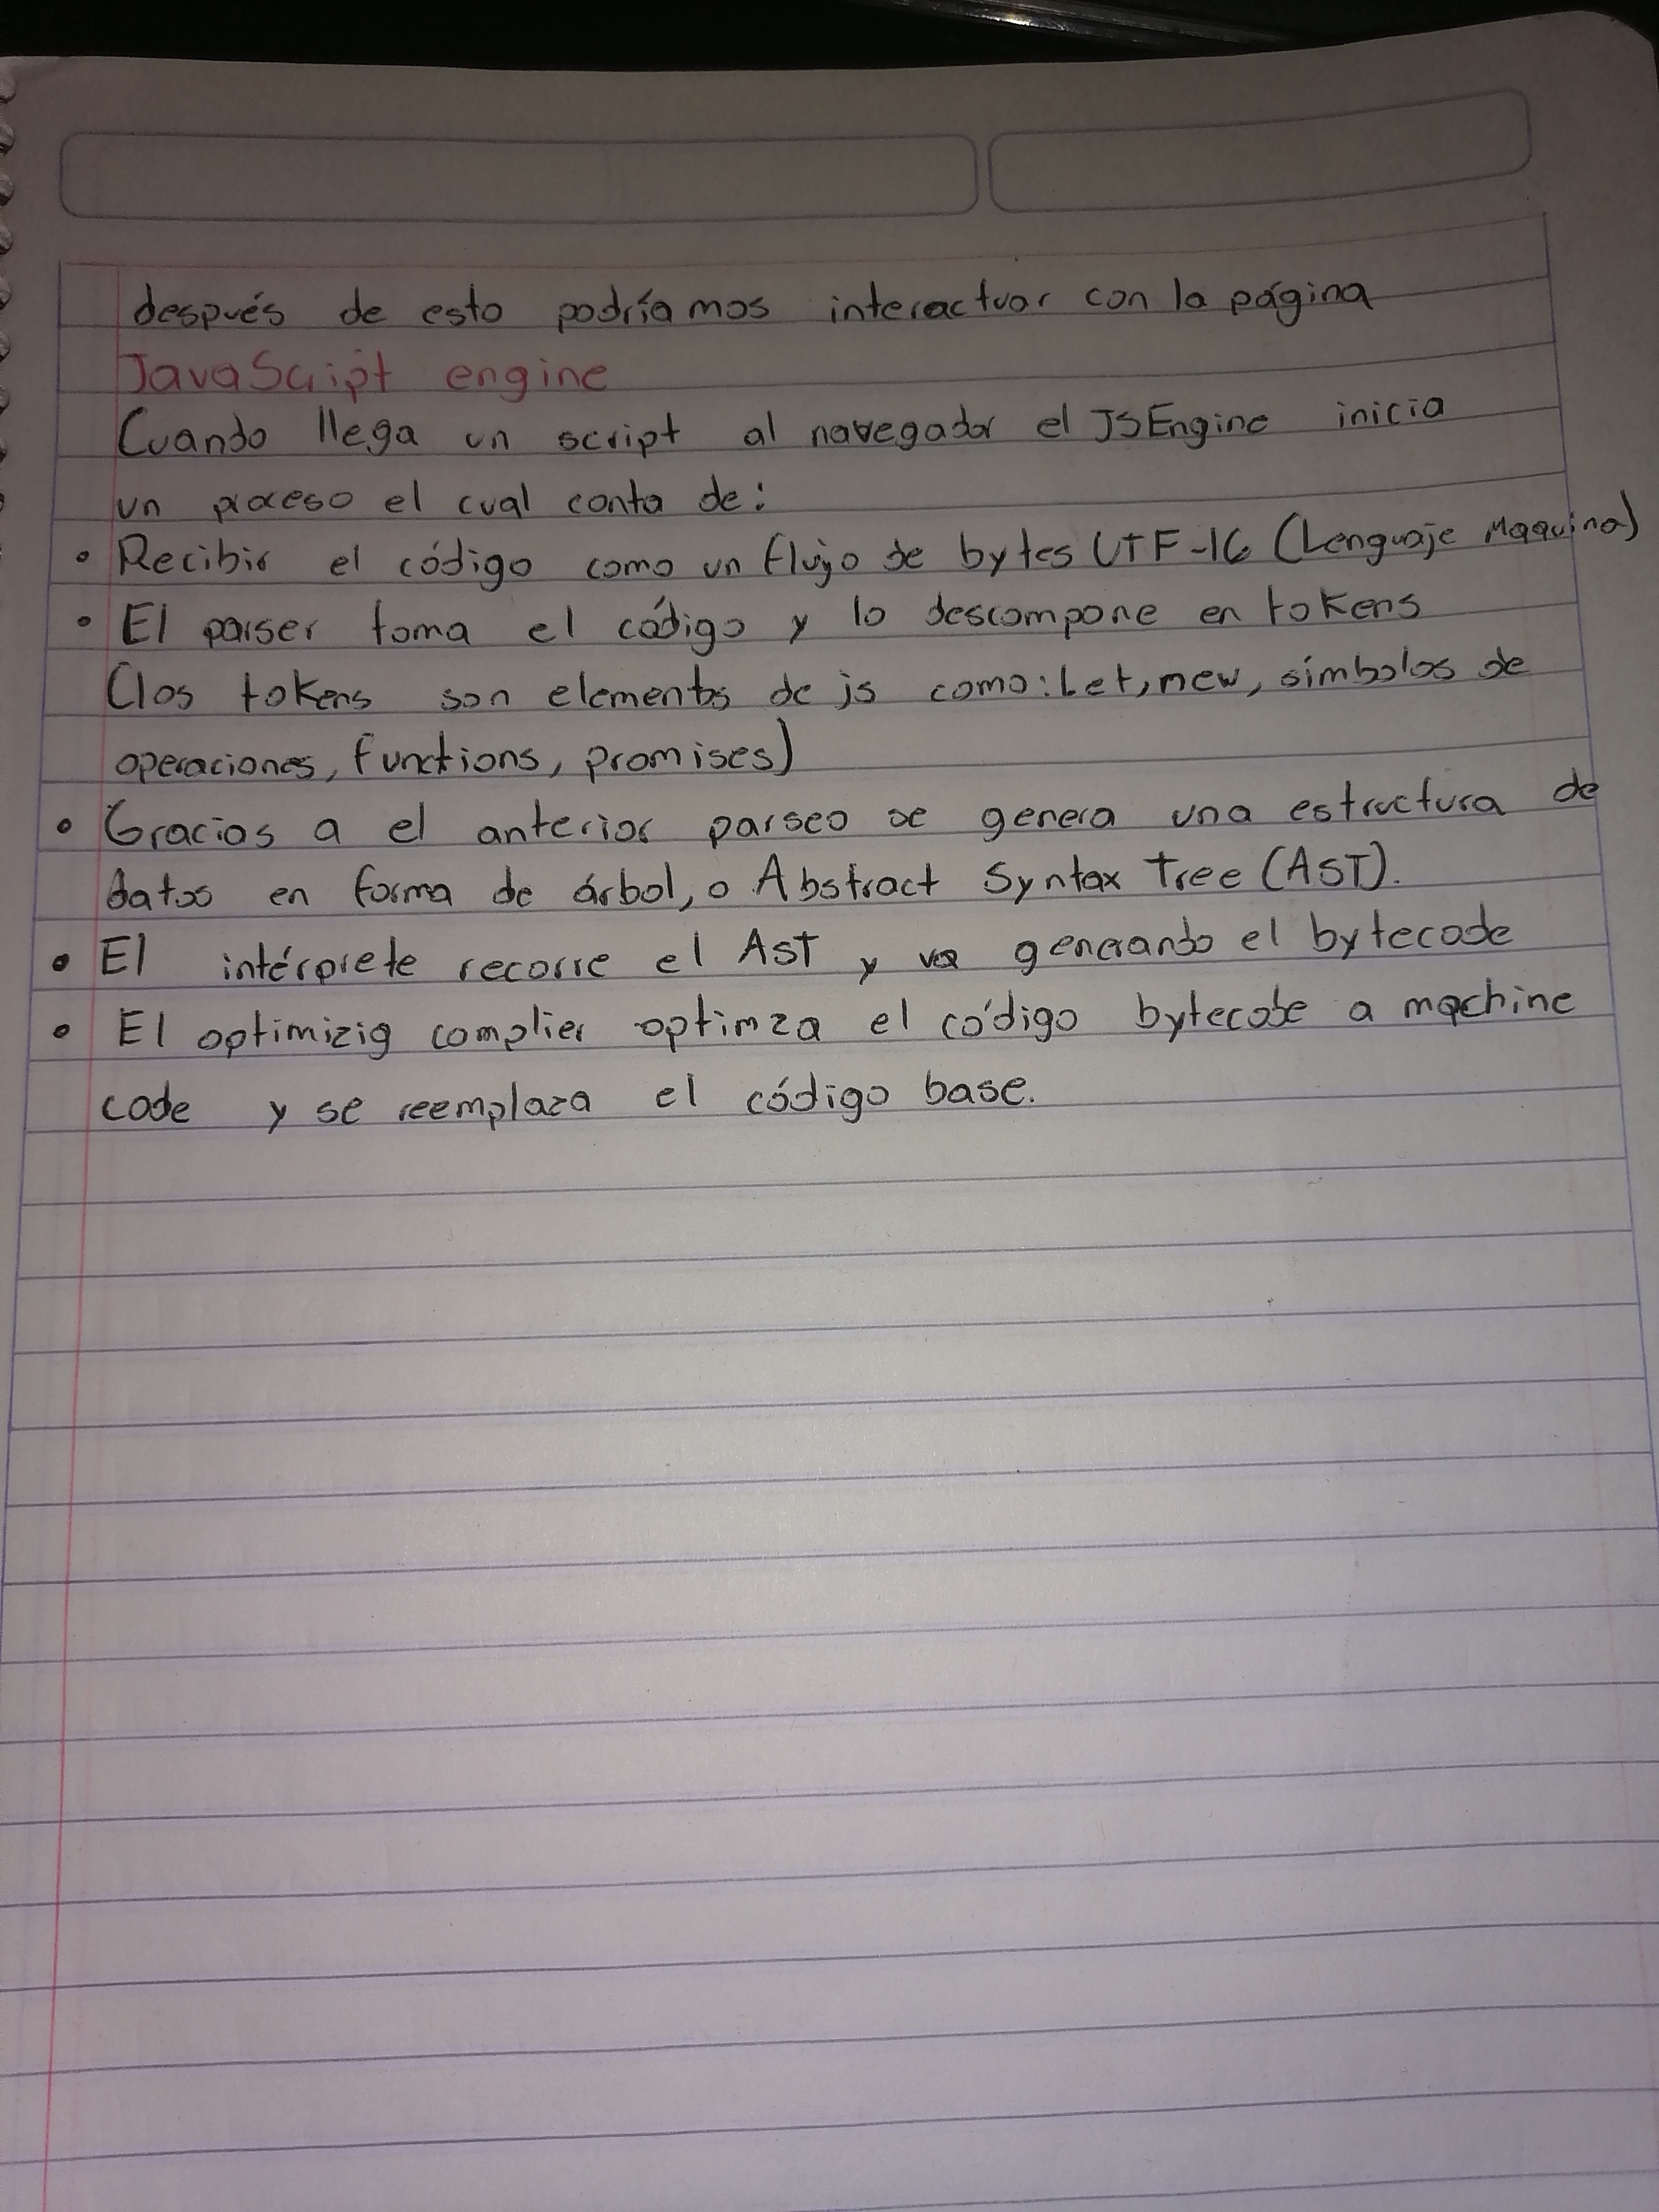 después de esto podríamos interactuar con la página
JavaScript engine
Cuando llega un script al navegador el JSEngine inicia
un proceso el cual conta de:
• Recibir el código como un flujo de bytes UTF-16 (Lenguaje Maquina)
• El parser toma el código y lo descompone en tokens
(los tokens son elements de js como: Let, new, símbolos de
operaciones, functions, promises)
• Gracias a el anterior parseo se genera una estructura de
datos en forma de árbol, o Abstract Syntax Tree (AST).
• El intérprete recorre el AST y va generando el bytecode
• El optimizig complier optimza el código bytecode a machine
code y se reemplaza el código base.